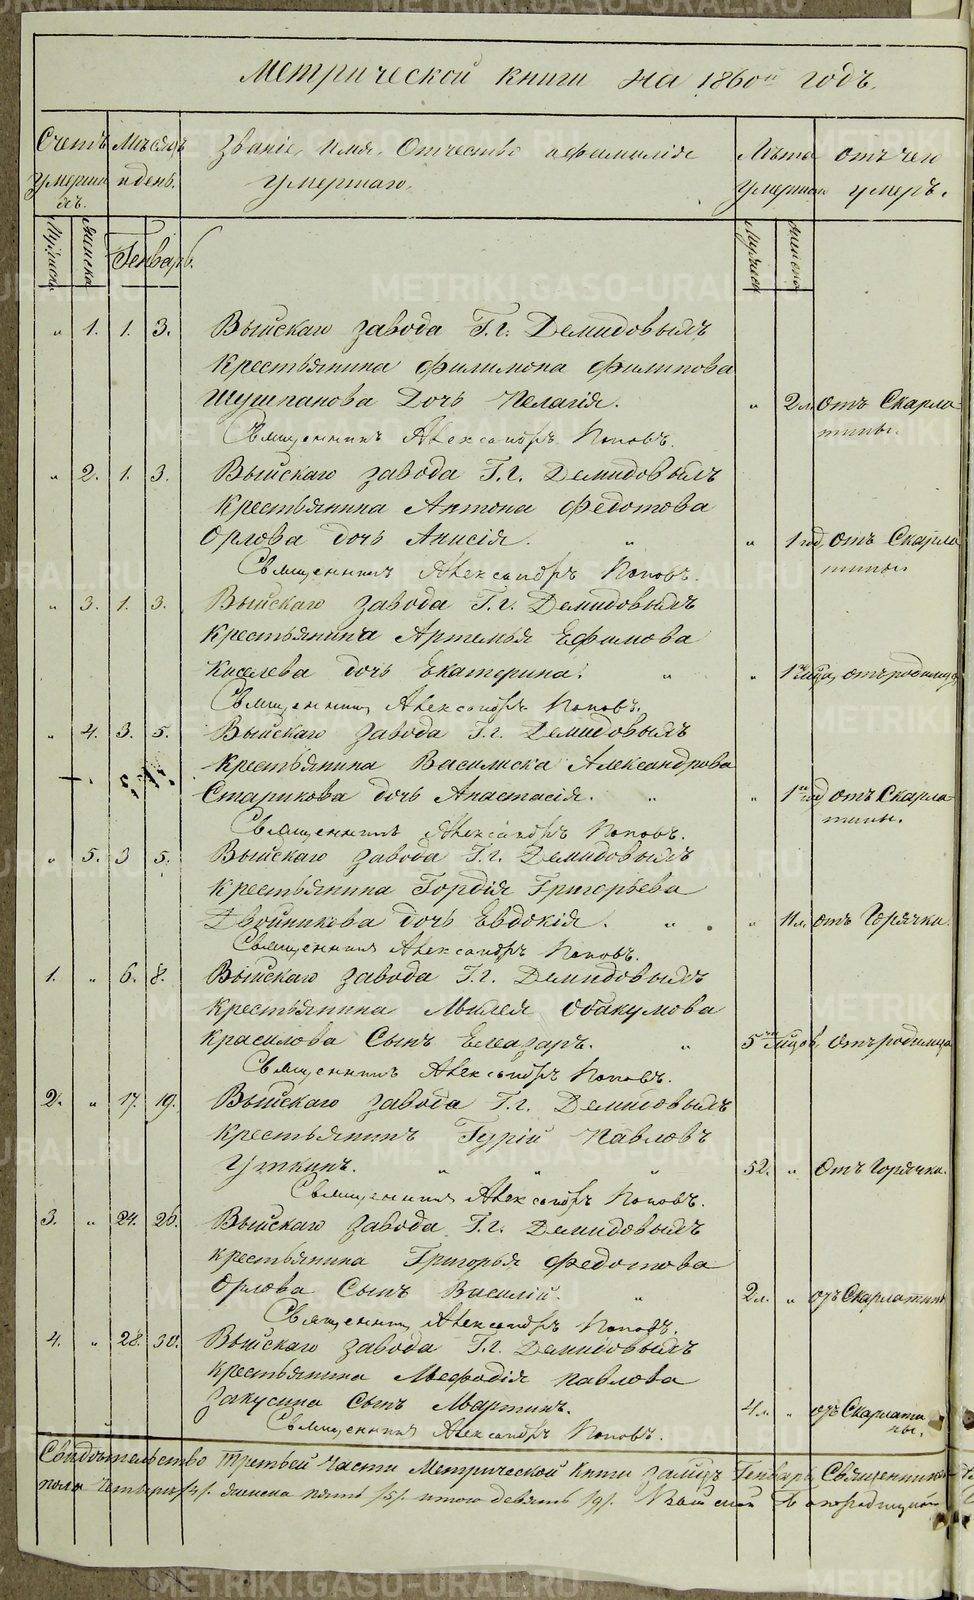 Метрической книги на 1860й годъ.
Счетъ умершихъ.
Мѣсяцъ и день.
Званіе, Имя, Отчество и фамилія умершаго.
Лѣта умершаго
отъ чего умеръ.
Мужска
Женска
Генварь.
Мужска
Женска
„ 1. 1. 3. Выйскаго завода Г.г. Демидовыхъ
Крестьянина Филимона Филипова
Шушпанова Дочь Пелагія. „ 2 л. отъ Скарла-
тины.
Священникъ Александръ Поповъ.
„ 2. 1. 3. Выйскаго завода Г.г. Демидовыхъ
Крестьянина Антона Федотова
Орлова дочь Анисія. „ „ 1 год. отъ Скарла
тины
Священникъ Александръ Поповъ.
„ 3. 1. 3. Выйскаго завода Г.г. Демидовыхъ
Крестьянина Артемья Ефимова
Киселева дочь Екатерина. „ „ 1 мѣца, отъ родимца
Священникъ Александръ Поповъ.
„ 4. 3. 5. Выйскаго завода Г.г. Демидовыхъ
Крестьянина Василиска Александрова
Старикова дочь Анастасія. „ „ 1 год отъ Скарла-
тины.
Священникъ Александръ Поповъ.
„ 5. 3 5. Выйскаго завода Г.г. Демидовыхъ
Крестьянина Гордія Григорьева
Двойникова дочь Евдокія. „ „ 11 л. отъ Горячки.
Священникъ Александръ Поповъ.
1. „ 6. 8. Выйскаго завода Г.г. Демидовыхъ
Крестьянина Обакумова
Красилова Сынъ Елеазаръ. „ 5ти мѣцов, отъ родимца
Священникъ Александръ Поповъ.
2. „ 17. 19. Выйскаго завода Г.г. Демидовыхъ
Крестьянинъ Гурій Павловъ
Уткинъ. „ „ „ 52. „ Отъ Горячки.
Священникъ Александръ Поповъ.
3. „ 24. 26. Выйскаго завода Г.г. Демидовыхъ
Крестьянина Григорья Федотова
Орлова Сынъ Василій. „ 2 л. „ отъ Скарлатины
Священникъ Александръ Поповъ.
4. „ 28. 30. Выйскаго завода Г.г. Демидовыхъ
Крестьянина Мефодія Павлова
Закусина Сынъ Мартинъ. 4 л. „ отъ Скарлати
ны.
Священникъ Александръ Поповъ.
Свидѣтельство третьей части Метрической Книги за мѣцъ Генварь Священникомъ
пола четыре /4/. женска пять /5/. итого девять /9/.
METRIKI.GASO-URAL.RU